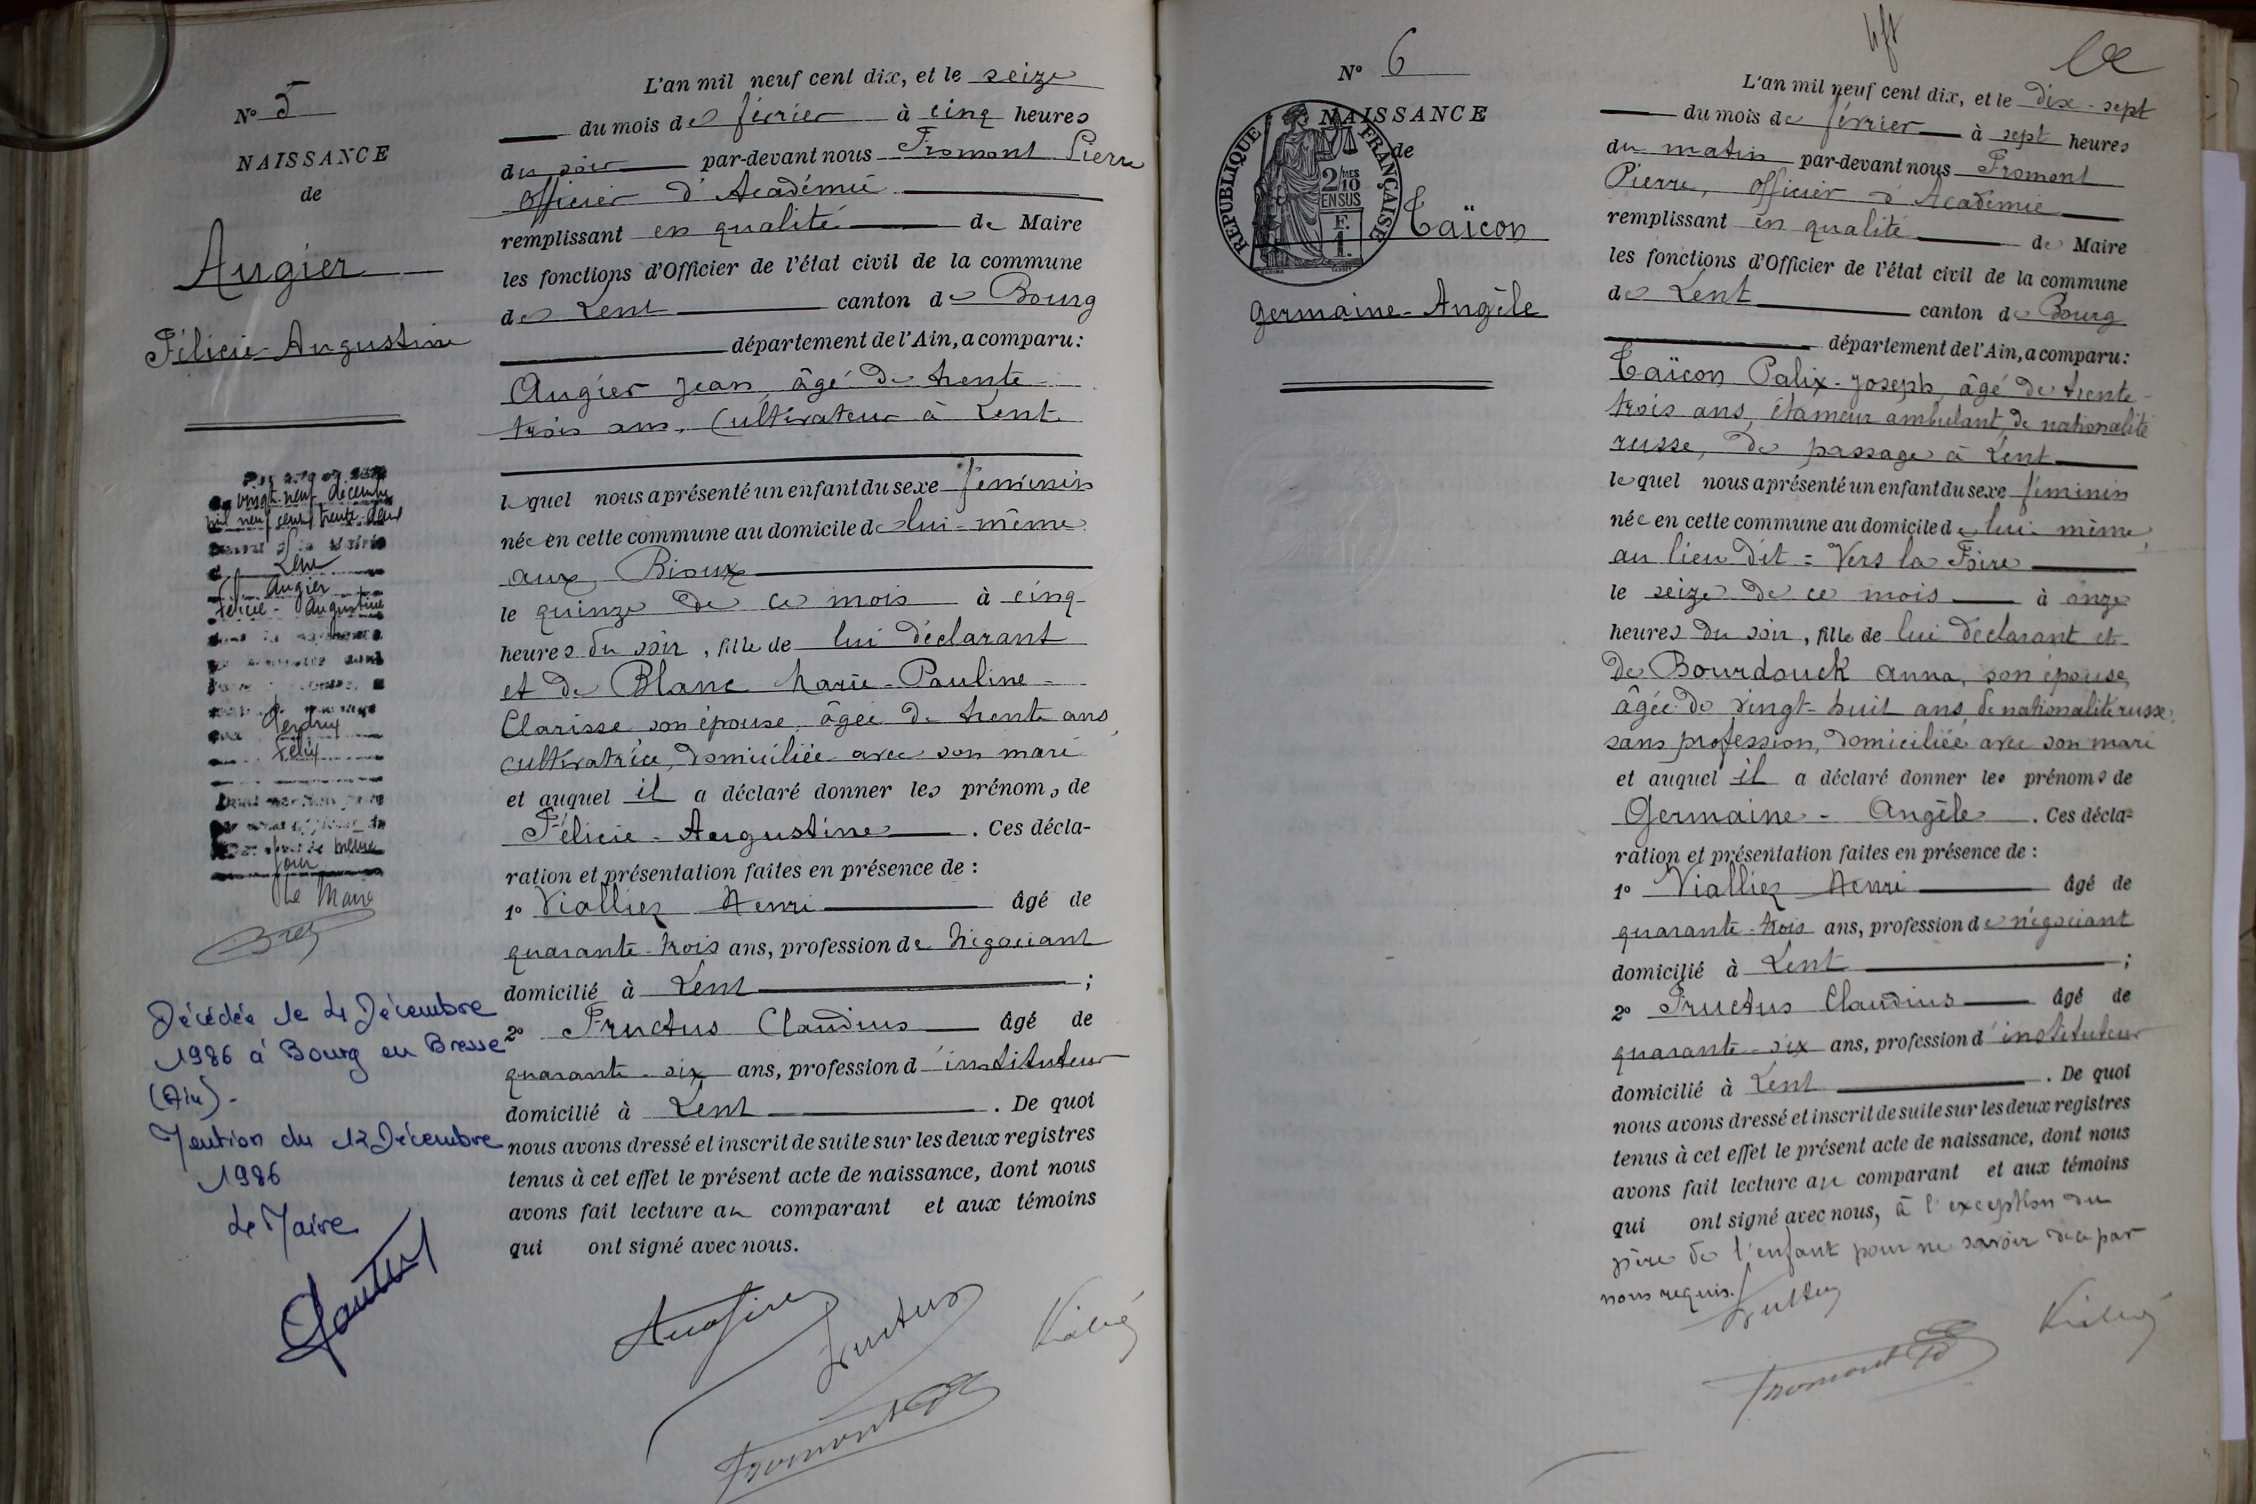 N° 5
NAISSANCE
de
Augier
Félicie-Augustine
vingt-neuf décembre
mil neuf cent trente-deux
Lent
Augier
Félicie-Augustine
Félix
même
jour
Le Maire
Décédée le 4 Décembre
1986 à Bourg en Bresse
(Ain).-
Mention du 12 Décembre
1986
Le Maire
L'an mil neuf cent dix, et le seize
du mois de février à cinq heures
du soir par-devant nous Fromont Pierre
officier d'Académie
remplissant en qualité de Maire
les fonctions d'Officier de l'état civil de la commune
de Lent canton de Bourg
département de l'Ain, a comparu:
Augier Jean, âgé de trente-
trois ans, cultivateur à Lent
lequel nous a présenté un enfant du sexe féminin
née en cette commune au domicile de lui-même
aux Bioux
le quinze de ce mois à cinq
heures du soir, fille de lui déclarant
et de Blanc Marie-Pauline-
Clarisse son épouse, âgée de trente ans,
cultivatrice, domiciliée avec son mari
et auquel il a déclaré donner les prénoms de
Félicie-Augustine. Ces décla-
ration et présentation faites en présence de :
1° Vialliez Henri âgé de
quarante-trois ans, profession de négociant
domicilié à Lent ;
2° Fructus Claudius âgé de
quarante-six ans, profession d'instituteur
domicilié à Lent. De quoi
nous avons dressé et inscrit de suite sur les deux registres
tenus à cet effet le présent acte de naissance, dont nous
avons fait lecture au comparant et aux témoins
qui ont signé avec nous.
Fructus
Fromont
N° 6
NAISSANCE
de
REPUBLIQUE FRANÇAISE
2/10 MES
EN SUS
F.
1.
Taïcon
Germaine-Angèle
L'an mil neuf cent dix, et le dix-sept
du mois de février à sept heures
du matin par-devant nous Fromont
Pierre, officier d'Académie
remplissant en qualité de Maire
les fonctions d'Officier de l'état civil de la commune
de Lent canton de Bourg
département de l'Ain, a comparu:
Taïcon Palix-Joseph, âgé de trente-
trois ans, étameur ambulant, de nationalité
russe, de passage à Lent
lequel nous a présenté un enfant du sexe féminin
née en cette commune au domicile de lui-même,
au lieu dit = Vers la Foire
le seize de ce mois à onze
heures du soir, fille de lui déclarant et
de Bourdouck Anna, son épouse,
âgée de vingt-huit ans, de nationalité russe,
sans profession, domiciliée avec son mari
et auquel il a déclaré donner les prénoms de
Germaine-Angèle. Ces décla-
ration et présentation faites en présence de :
1° Vialliez Henri âgé de
quarante-trois ans, profession de négociant
domicilié à Lent ;
2° Fructus Claudius âgé de
quarante-six ans, profession d'instituteur
domicilié à Lent. De quoi
nous avons dressé et inscrit de suite sur les deux registres
tenus à cet effet le présent acte de naissance, dont nous
avons fait lecture au comparant et aux témoins
qui ont signé avec nous, à l'exception du
père de l'enfant pour ne savoir de ce par
nous requis.
Fromont